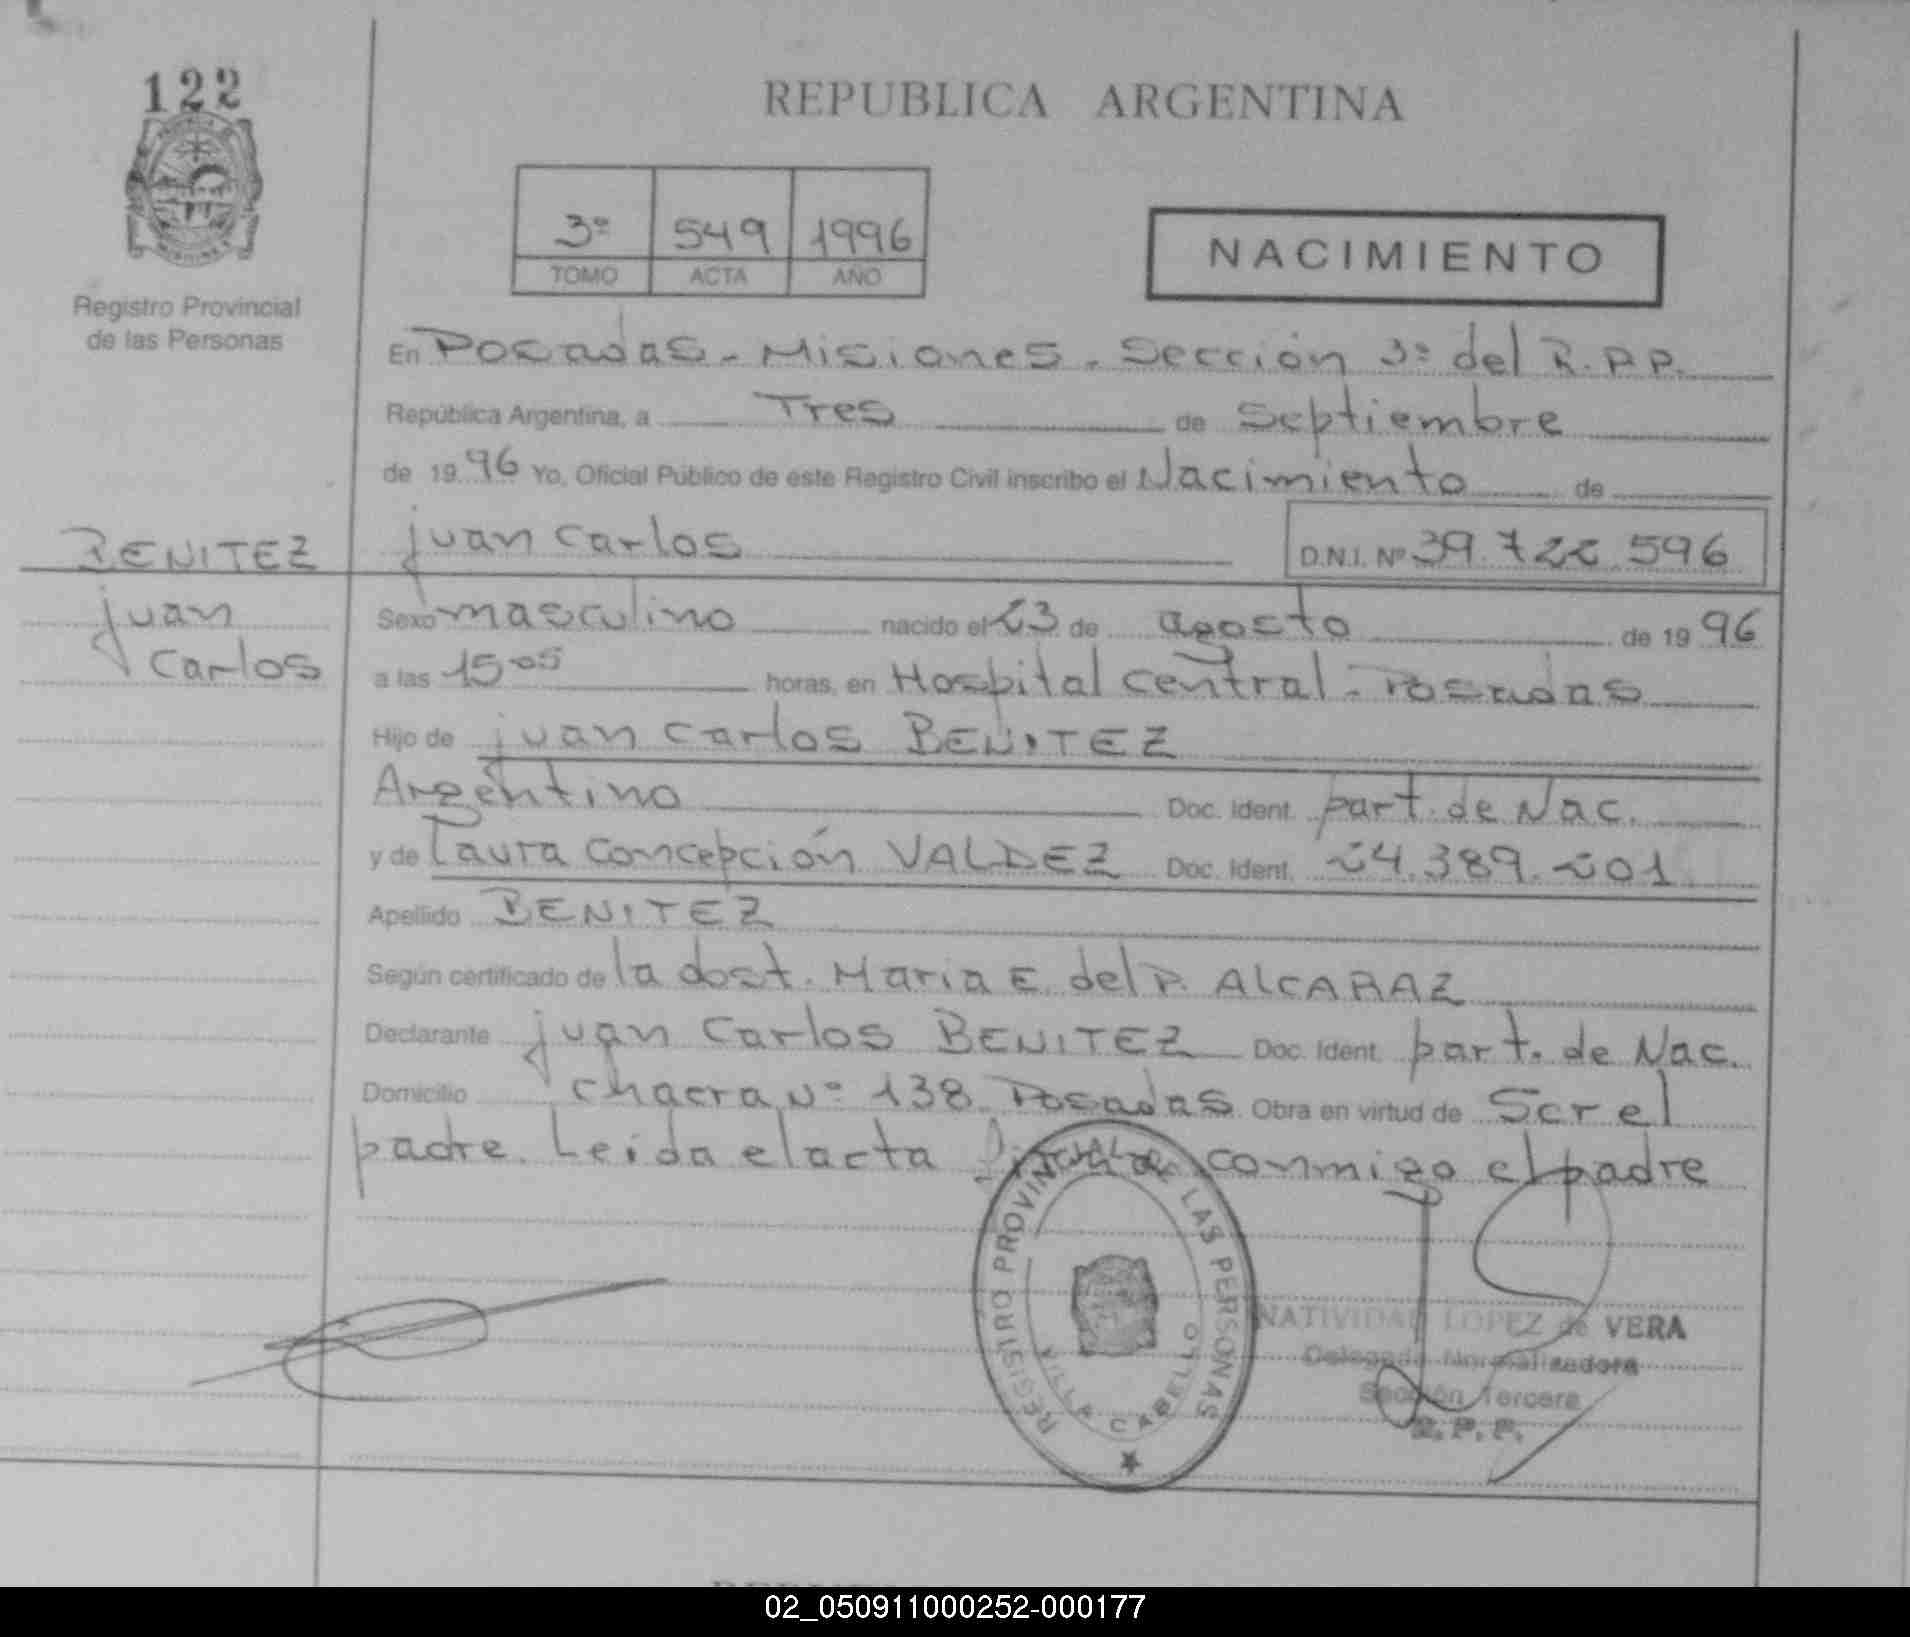 122
REPUBLICA ARGENTINA
3º 549 1996
TOMO ACTA AÑO
NACIMIENTO
Registro Provincial
de las Personas
En Posadas - Misiones - Sección 3º del R.P.P.
República Argentina, a Tres de Septiembre
de 1996 Yo, Oficial Público de este Registro Civil inscribo el Nacimiento de
BENITEZ juan carlos D.N.I. Nº 39.722.596
juan Sexo masculino nacido el 23 de agosto de 1996
carlos a las 15 05 horas, en Hospital central - Posadas
Hijo de juan carlos BENITEZ
Argentino Doc. Ident. part. de Nac.
y de Laura Concepción VALDEZ Doc. Ident. 24.389.201
Apellido BENITEZ
Según certificado de la dost. Maria E. del P. ALCARAZ
Declarante juan Carlos BENITEZ Doc. Ident. part. de Nac.
Domicilio chacra Nº 138 Posadas Obra en virtud de Ser el
padre. Leida el acta conmigo el padre
REGISTRO PROVINCIAL DE LAS PERSONAS
VILLA CABELLO
NATIVIDAD LOPEZ de VERA
Delegada Normalizadora
Sección Tercera
R.P.P.
02_050911000252-000177